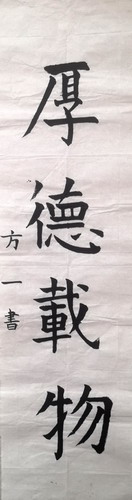 厚德載物
方一書